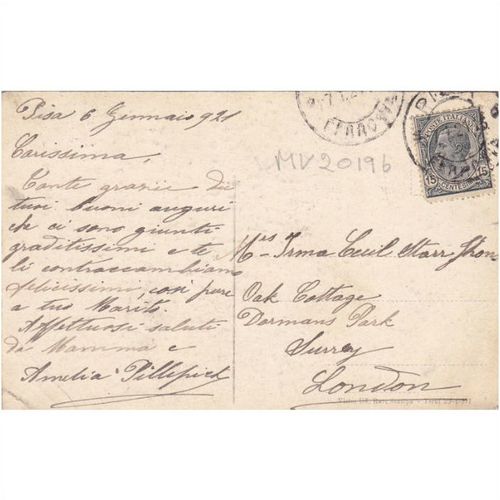 Pisa 6 Gennaio 921
Carissima,
Tante grazie dei
tuoi buoni auguri
che ci sono giunti
graditissimi e te
li contraccambiamo
felicissimi, così pure
a tuo Marito.
Affettuosi saluti
da Mamma e
Amelia Pillepich
FERROVIA
MV20196
POSTE ITALIANE
15 CENTESIMI 15
Mrs Irma Cecil Starr
Oak Cottage
Dormans Park
Surrey
London